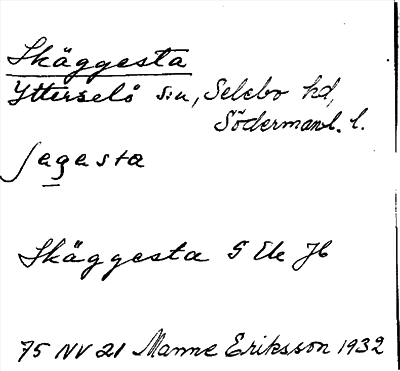 Skäggesta
Ytterselö sn, Selebo hd,
Södermanl. l.
Skäggesta 5 Ek JB
75 NV 21 Manne Eriksson 1932